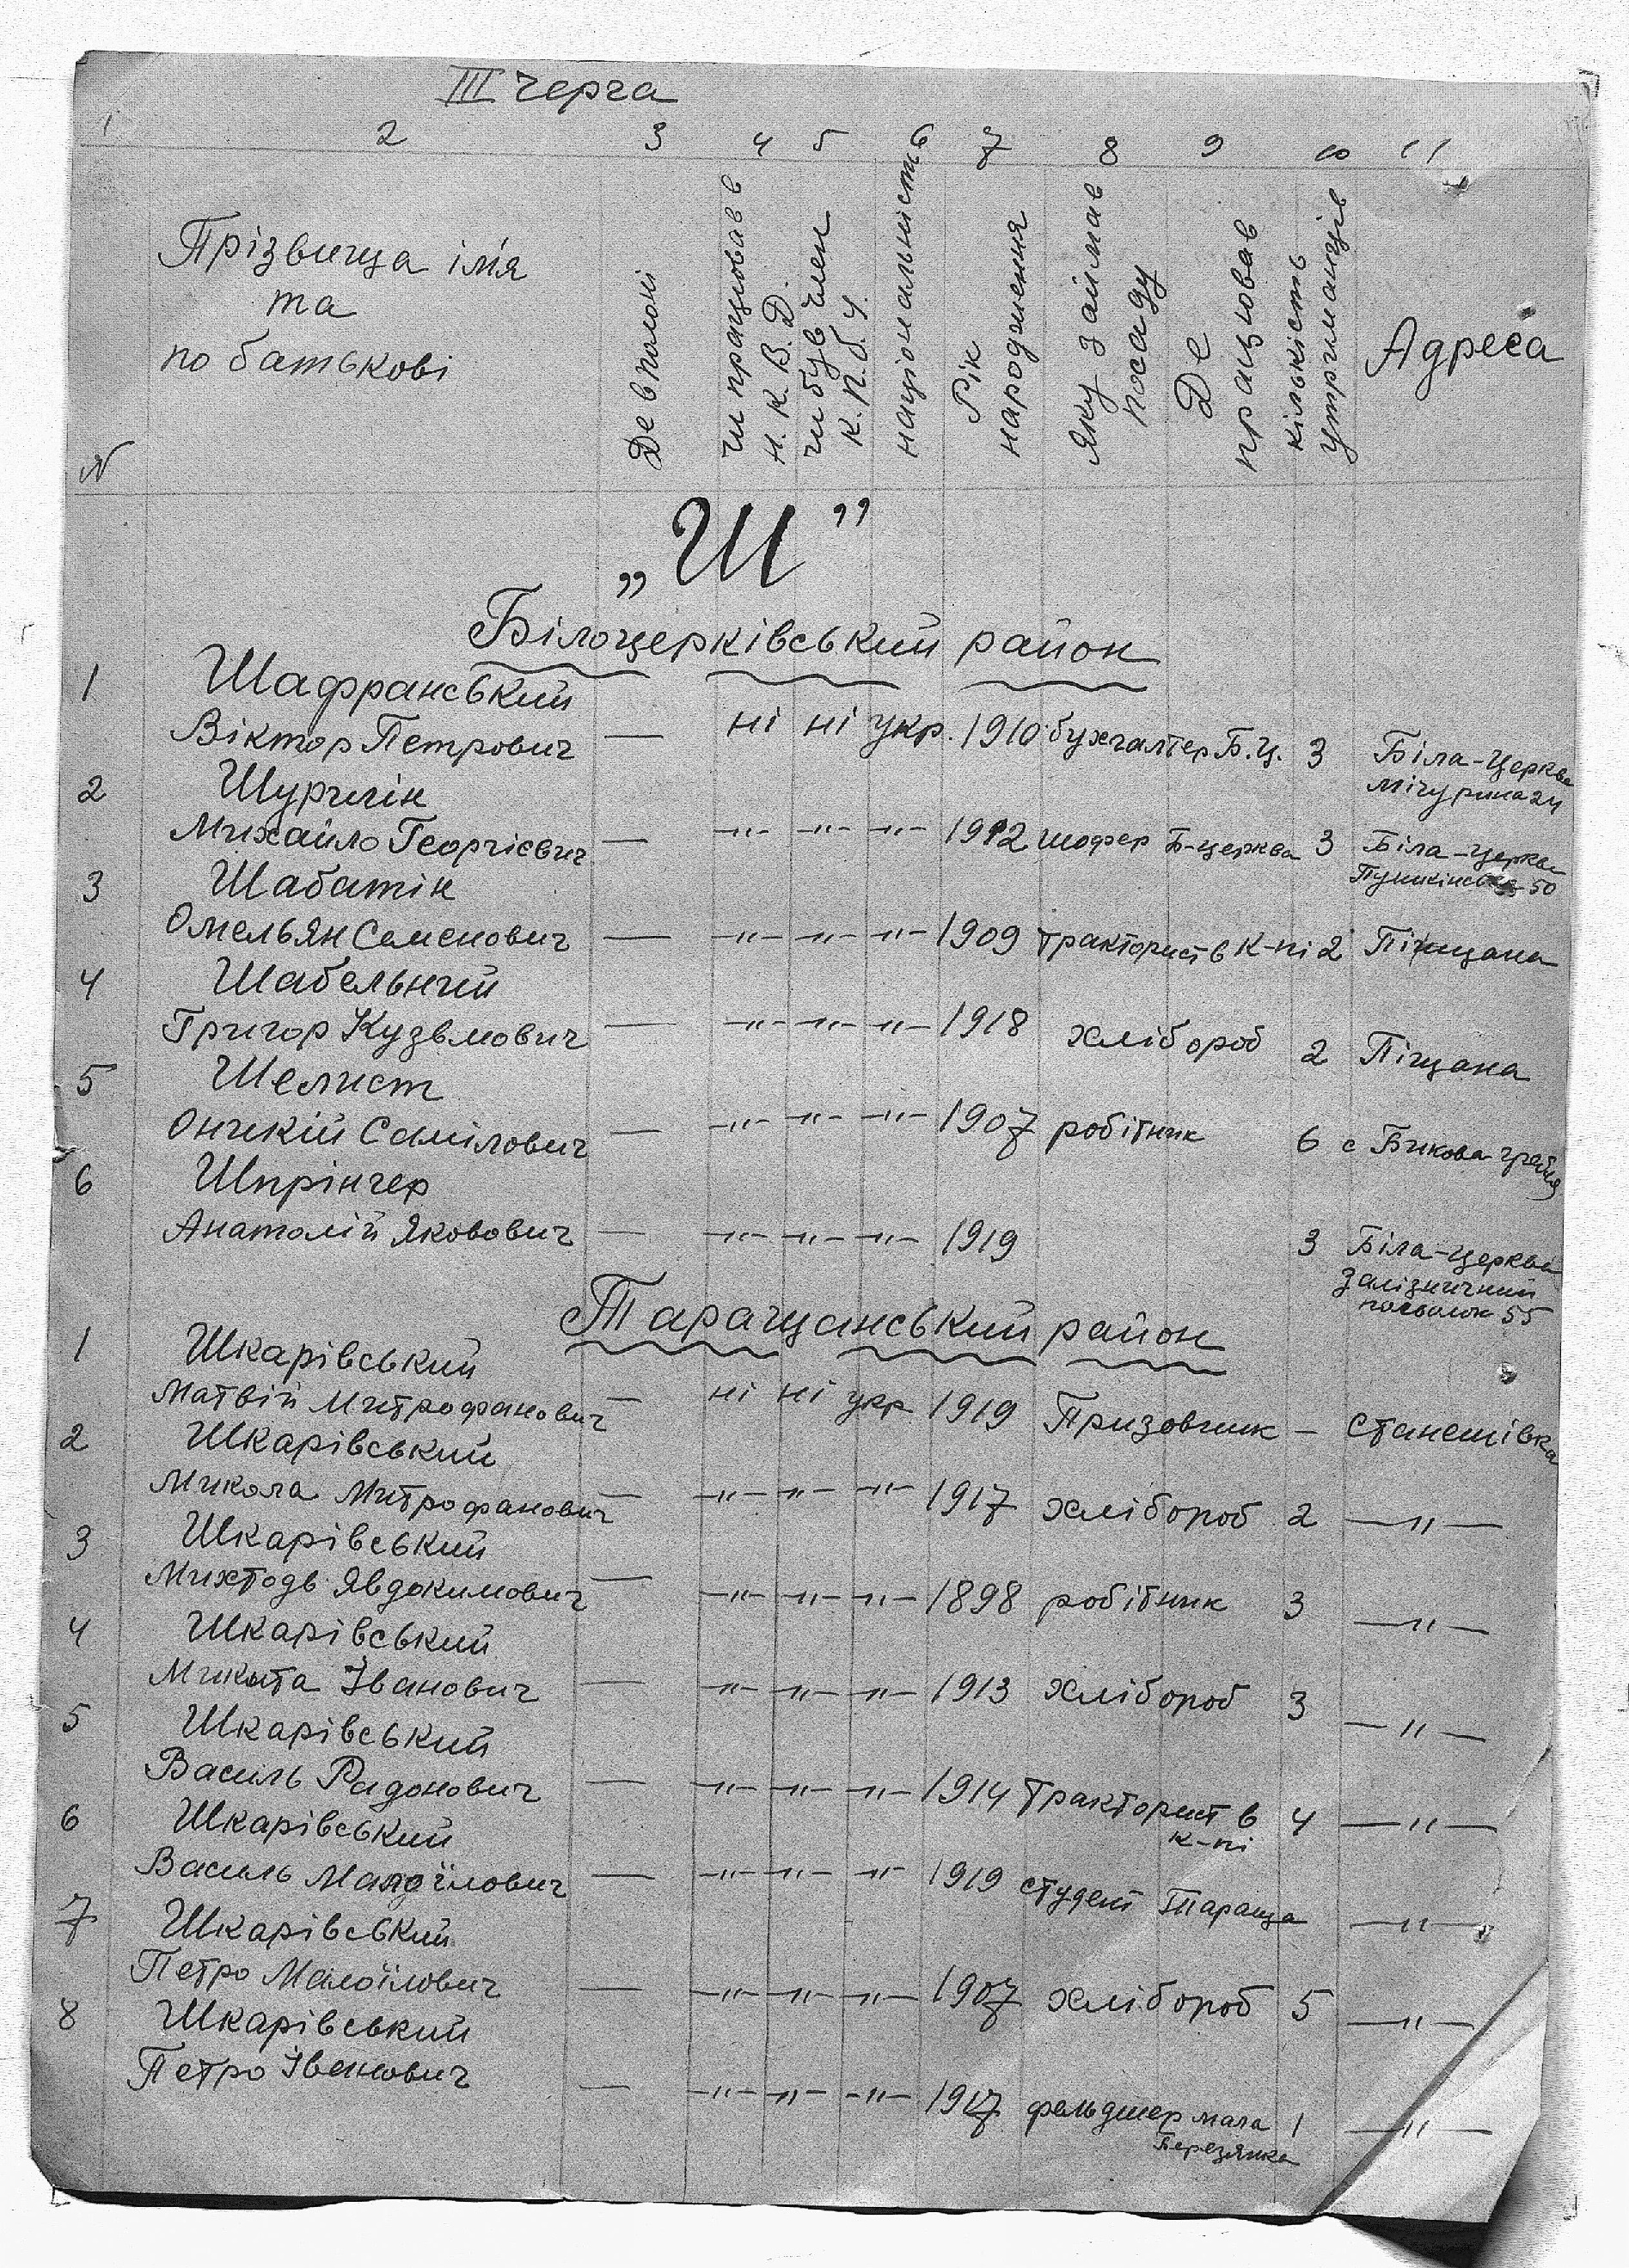 III черга
1 2 3 4 5 6 7 8 9 10 11
N Прізвища ім'я та по батькові Де в полоні чи працював в Н.К.В.Д. чи був член К.П.б.У. національність Рік народження Яку займав посаду Де працював кількість утриманців Адреса
„Ш”
Білоцерківський район
1 Шафранський
Віктор Петрович — ні ні укр. 1910 бухгалтер Б.Ц. 3 Біла-Церква
Мічуріна 24
2 Шургин
Михайло Георгієвич — -"- -"- -"- 1912 шофер Б-церква 3 Біла-Церква
Пушкінська 50
3 Шабатін
Омельян Семенович — -"- -"- -"- 1909 тракторист в к-пі 2 Піщана
4 Шабельний
Григор Кузьмович — -"- -"- -"- 1918 хлібороб 2 Піщана
5 Шелист
Самілович — -"- -"- -"- 1907 робітник 6 с Бикова
6 Шпрінгер
Анатолій Яковович — -"- -"- -"- 1919 3 Біла-Церква
Залізничний
посьолок 55
Таращанський район
1 Шкарівський
Матвій Митрофанович — ні ні укр 1919 Призовник — Станешівка
2 Шкарівський
Микола Митрофанович — -"- -"- -"- 1917 хлібороб 2 —"—
3 Шкарівський
Михтодь Явдокимович — -"- -"- -"- 1898 робітник 3 —"—
4 Шкарівський
Микита Іванович — -"- -"- -"- 1913 хлібороб 3 —"—
5 Шкарівський
Василь Радонович — -"- -"- -"- 1914 Тракторист в 4 —"—
к-пі
6 Шкарівський
Василь — -"- -"- -"- 1919 студент Тараща —"—
7 Шкарівський
Петро Малоїлович — -"- -"- -"- 1907 хлібороб 5 —"—
8 Шкарівський
Петро Іванович — -"- -"- -"- 1917 фельдшер мала 1 —"—
Березянка